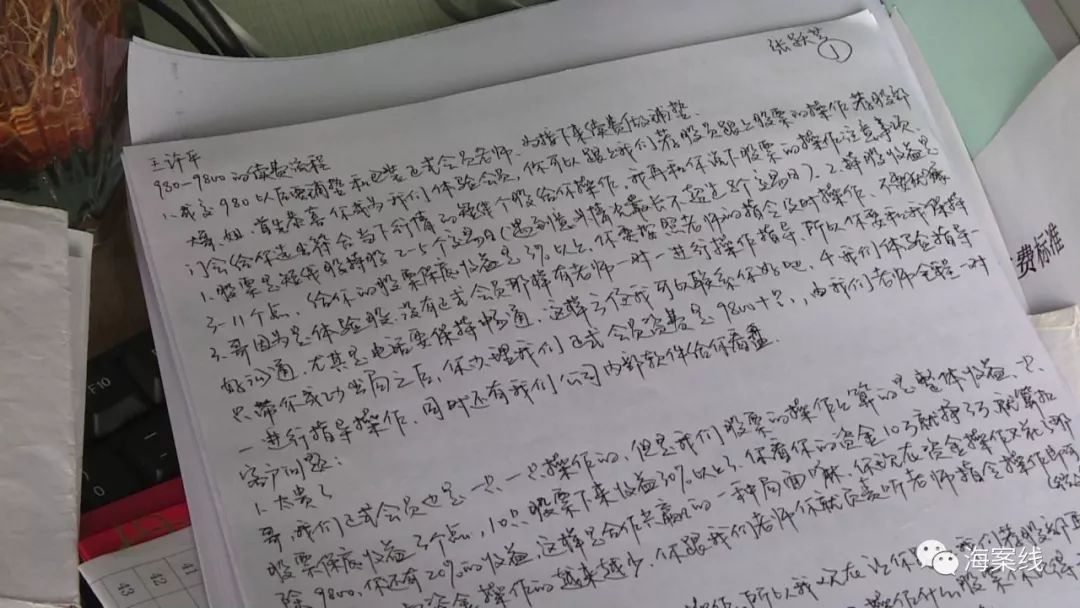 张跃芸 ①
王许平
980-9800的续费流程
1.成交980以后要调整和包装正式会员老师,为接下来续费做铺垫.
大哥、姐,首先恭喜你成为我们体验会员,你可以跟上我们荐股员跟上股票的操作 荐股部
门会给你选出符合当下行情的短线个股给你操作,我再和你说下股票的操作注意事项.
1.股票是短线股持股2-5个交易日(遇到意外情况最长不超过8个交易日).2.荐股收益是
3-11个点,给你的股票保底收益是3%以上,你要按照老师的指令及时操作,不要犹豫
3.哥因为是体验股,没有正式会员那样有老师一对一进行操作指导,所以你要和我保持
好沟通,尤其是电话要保持畅通,这样方便我可以联系你好吧,4.我们体验指导一
只,带你成功出局之后,你办理我们正式会员资费是9800十只,由我们老师全程一对
一进行指导操作,同时还有我们公司内部软件给你看盘.
客户问题:
1.太贵了
哥,我们正式会员也是一只一只操作的,但是我们股票的操作上算的是整体收益,一只
股票保底收益3个点,10只股票下来收益30%以上了,你看你的资金10万就挣3万就算扣
除9800,你还有20%的收益,这样是合作共赢的一种局面嘛,你现在资金操作又在亏
资金操作的越来越少,你跟我们老师你就负责听老师指令操作即可
所以我现在让你
我们荐股部
操作什么股票
费标准
F10
41
42
43
海案线